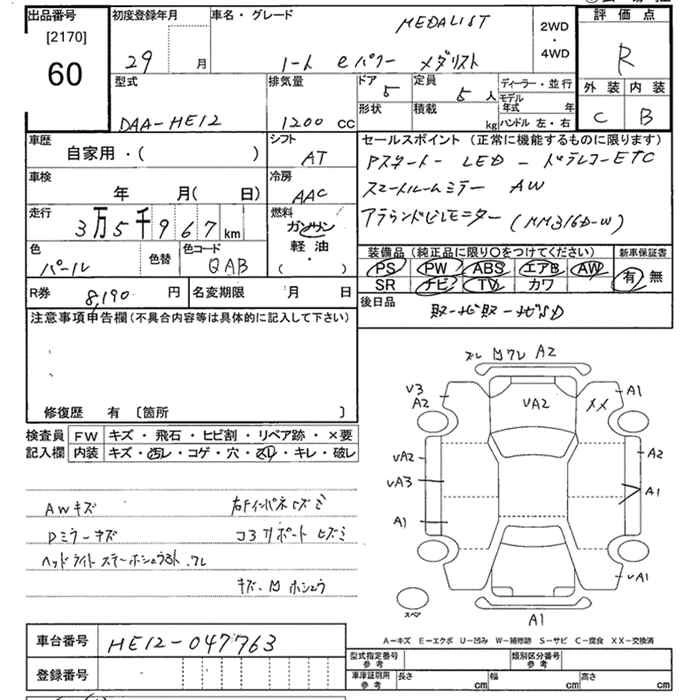 出品番号
[2170]
60
初度登録年月
29 月
車名・グレード
MEDALIST
ノート eパワー メダリスト
2WD
・
4WD
評価点
R
外装 内装
C B
型式
DAA-HE12
排気量
1200 cc
ドア
5
定員
5 人
形状
積載
kg
ディーラー・並行
モデル年式 年
ハンドル 左・右
車歴
自家用・( )
シフト
AT
車検
年 月( 日)
冷房
AAC
走行
3万5千967 km
燃料
ガソリン
軽油
( ・ )
色
パール
色替
色コード
QAB
R券 8,190 円
名変期限 月 日
セールスポイント (正常に機能するものに限ります)
Pスタート- LED - ドラレコ-ETC
スマートルームミラー AW
アラウンドビューモニター (MM316D-W)
装備品 (純正品に限り○をつけてください)
新車保証書
PS PW ABS エアB AW
SR ナビ TV カワ
有 無
後日品
注意事項申告欄 (不具合内容等は具体的に記入して下さい)
修復歴 有 [箇所 ]
検査員記入欄
FW キズ・飛石・ヒビ割・リペア跡・×要
内装 キズ・汚レ・コゲ・穴・スレ・キレ・破レ
AWキズ
Dミラーキズ
右Fインパネ ヒズミ
コアサポート ヒズミ
キズ・凹 ホシュウ
A2
V3
A2
UA2
XX
A1
UA2
UA3
A1
A2
A1
UA1
A1
スペア
A-キズ E-エクボ U-凹み W-補修跡 S-サビ C-腐食 XX-交換済
車台番号 HE12-047763
登録番号
型式指定番号
参考
類別区分番号
参考
車庫証明用
参考
長さ cm 幅 cm 高さ cm